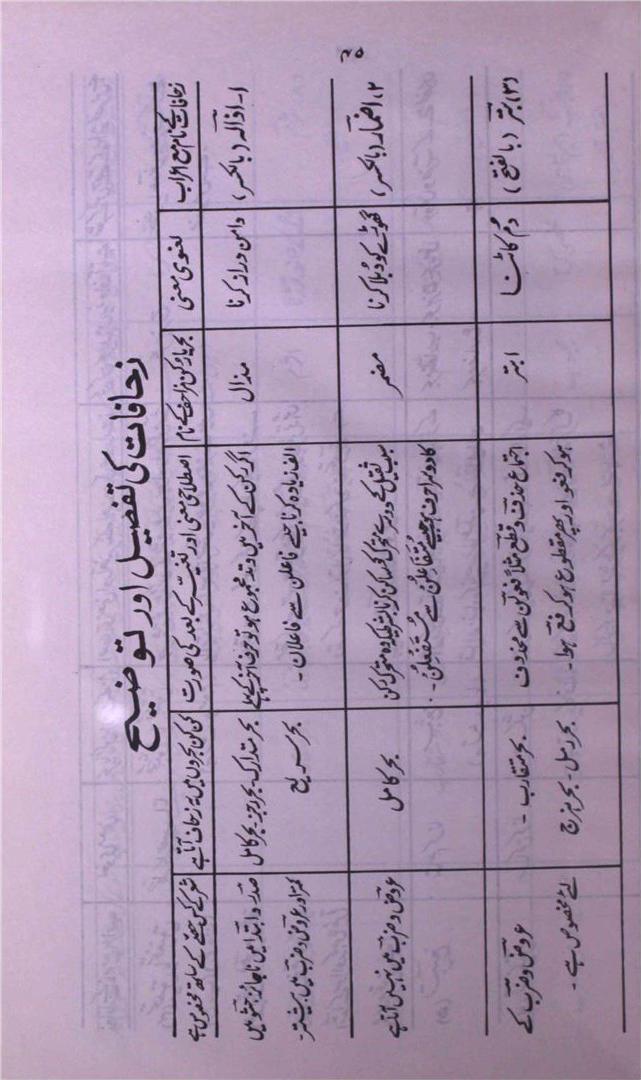 ۶۵
زحافات کی تفصیل اور توضیح
زحافات کے نام مع اعراب
لغوی معنی
بحر یا رکن مزاحف کے نام
اصطلاحی معنی اور تغیّر کے بعد کی صورت
کن کن بحروں میں یہ زحاف آتا ہے
شعر کے کس حصّے کے ساتھ مخصوص ہے
۱۔ اذالہ (بالکسر)
دامن دراز کرنا
مذال
اگر رکن کے آخر میں وتد مجموع ہو تو حرف آخر سے پہلے
الف زیادہ کرنا جیسے فاعلن سے فاعلان۔
بحر متدارک۔ بحر رجز۔ بحر کامل
بحر سریع
صدر و ابتدا میں ناجائز، حشو میں
کمتر اور عروض و ضرب میں بیشتر۔
۲، اضمار (بالکسر)
گھوڑے کو دُبلا کرنا
مضمر
سبب ثقیل کے دوسرے متحرک کو ساکن کرنا بشرطیکہ وہ متحرک رکن
کا دوسرا حرف ہو جیسے مُتَفَاعِلُن سے مُسْتَفْعِلُن۔
بحر کامل
عروض و ضرب میں نہیں آتا ہے
(۳) بتر (بالفتح)
دُم کاٹنا
ابتر
اجتماع حذف و قطع مثلاً فعولن سے محذوف
ہو کر فعو اور پھر مقطوع ہو کر فع ہوا۔
بحر متقارب۔
بحر رمل۔ بحر ہزج
عروض و ضرب کے
لئے مخصوص ہے۔